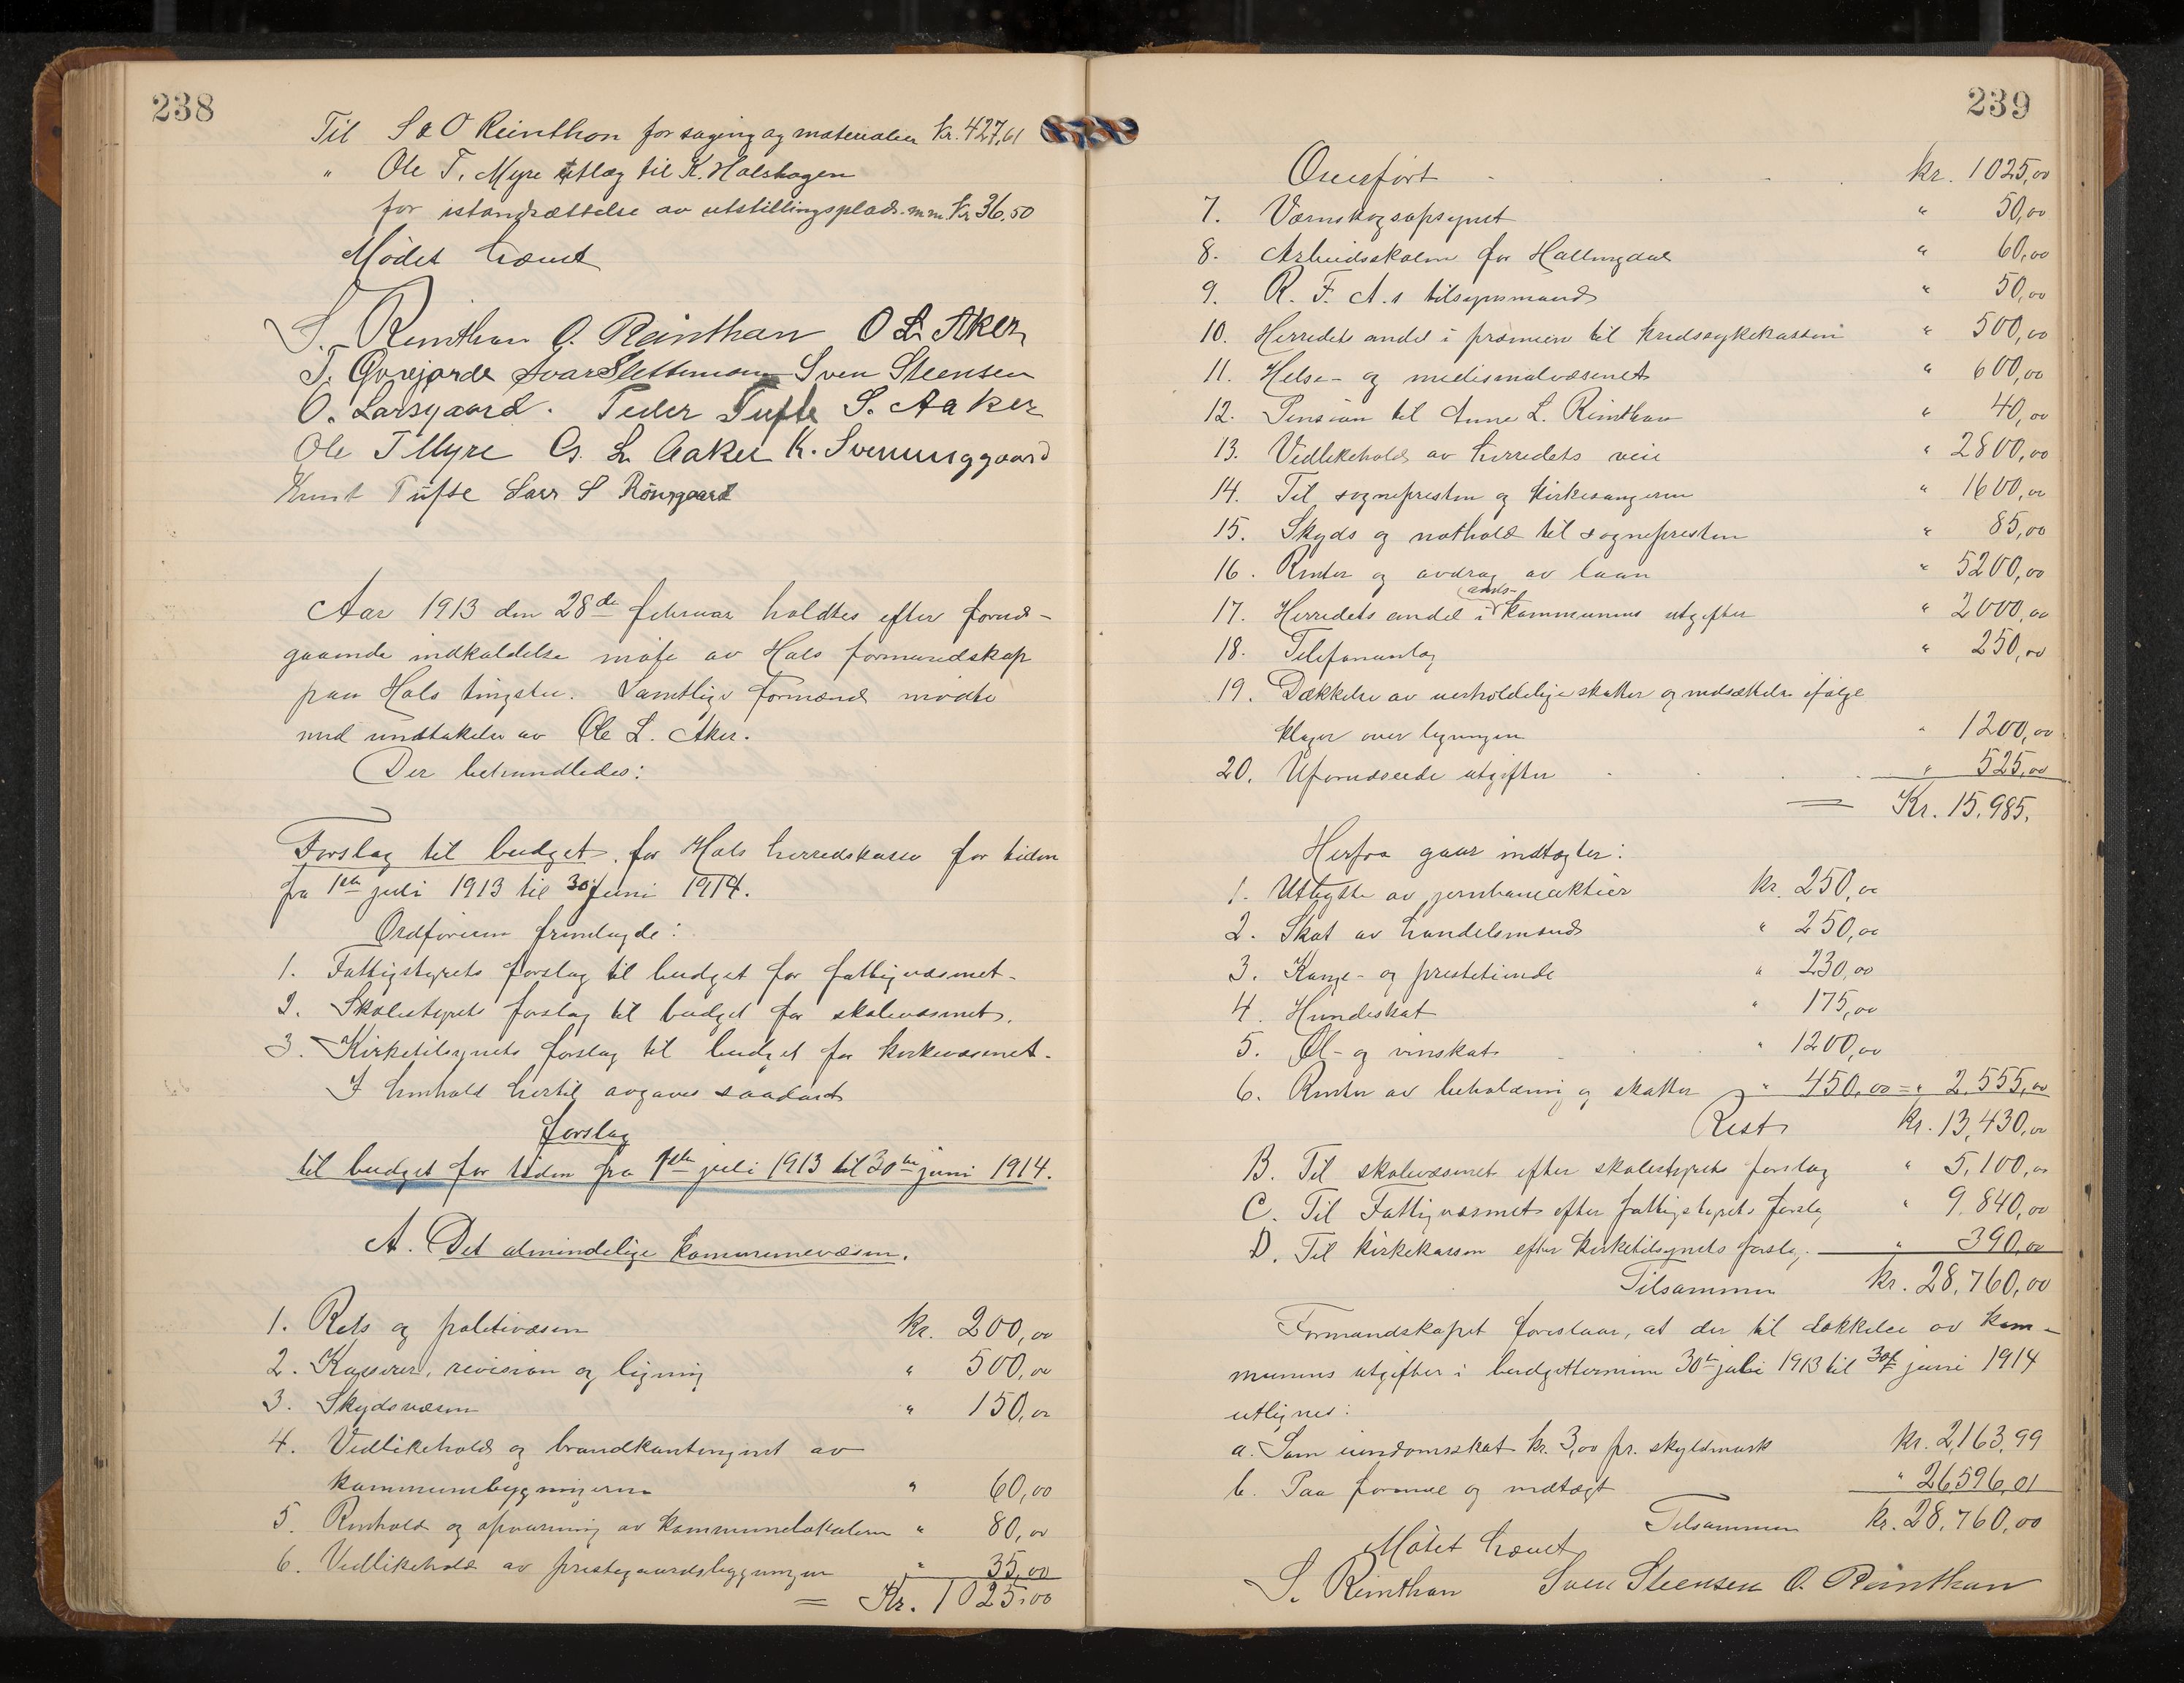 238
Til S & O Reinthon for saging og materialier kr. 427,61
" Ole T. Myre utlæg til K. Halshagen
for istandsættelse av utstillingsplads m.m. kr 36,50
Mødet hævet
S. Reinthon O. Reinthon O L Aker
T. Qvisgarde Ivar Slettemoen Sven Steensen
O. Larsgaard. Peder Tufte S. Aaker
Ole T Myre G. L. Aaker K. Svenunggaard
Knut Tufte Lars S Röungaard
Aar 1913 den 28de februar holdtes efter forut-
gaaende indkaldelse møte av Hols formandskap
paa Hols tingstue. Samtlige formænd mødte
med undtakelse av Ole L. Aker.
Der behandledes:
Forslag til budget for Hols herredskasse for tiden
fra 1ste juli 1913 til 30 juni 1914.
Ordføreren fremlagde:
1. Fattigstyrets forslag til budget for fattigvæsenet.
2. Skolestyrets forslag til budget for skolevæsenet.
3. Kirketilsynets forslag til budget for kirkevæsenet.
I henhold hertil avgaves saadant
forslag
til budget for tiden fra 1ste juli 1913 til 30te juni 1914.
A. Det almindelige kommunevæsen.
1. Rets og politivæsen kr. 200,00
2. Kasserer, revision og ligning " 500,00
3. Skydsvæsen " 150,00
4. Vedlikehold og brandkontingent av
kommunebygningerne " 60,00
5. Renhold og opvarming av kommunelokalerne " 80,00
6. Vedlikehold av prestegaardsbygninger " 35,00
= Kr. 1025,00
239
Overført kr. 1025,00
7. Værnskogsopsynet " 50,00
8. Arbeidsskolen for Hallingdal " 60,00
9. R. F. A.s tilsynsmand " 50,00
10. Herredets andel i præmien til kredssykekassen " 500,00
11. Helse- og medisinalvæsenet " 600,00
12. Pension til Anne L. Reinthon " 40,00
13. Vedlikehold av herredets veie " 2800,00
14. Til sognepresten og kirkesangeren " 1600,00
15. Skyds og nathold til sognepresten " 85,00
16. Renter og avdrag av laan " 5200,00
17. Herredets andel i amts-kommunens utgifter " 2000,00
18. Telefonanlæg " 250,00
19. Dækkelse av uerholdelige skatter og nedsættelse ifølge
klager over ligningen " 1200,00
20. Uforutseede utgifter " 525,00
= Kr. 15.985.
Herfra gaar indtægter:
1. Utbytte av jernbaneaktier kr. 250,00
2. Skat av handelsmænd " 250,00
3. Konge- og prestetiende " 230,00
4. Hundeskat " 175,00
5. Øl- og vinskat " 1200,00
6. Renter av beholdning og skatter " 450,00 = " 2.555,00
Rest kr. 13,430,00
B. Til skolevæsenet efter skolestyrets forslag " 5.100,00
C. Til Fattigvæsenet efter fattigstyrets forslag " 9.840,00
D. Til kirkekassen efter kirketilsynets forslag. " 390,00
Tilsammen kr. 28.760,00
Formandskapet foreslaar, at der til dækkelse av kom-
munens utgifter i budgetterminen 30te juli 1913 til 30te juni 1914
utlignes:
a. Som eiendomsskat kr. 3,00 pr. skyldmark kr. 2,163,99
b. Paa formue og indtægt " 26596,01
Tilsammen kr. 28.760,00
Møtet hævet
S. Reinthon Sven Steensen O. Reinthon